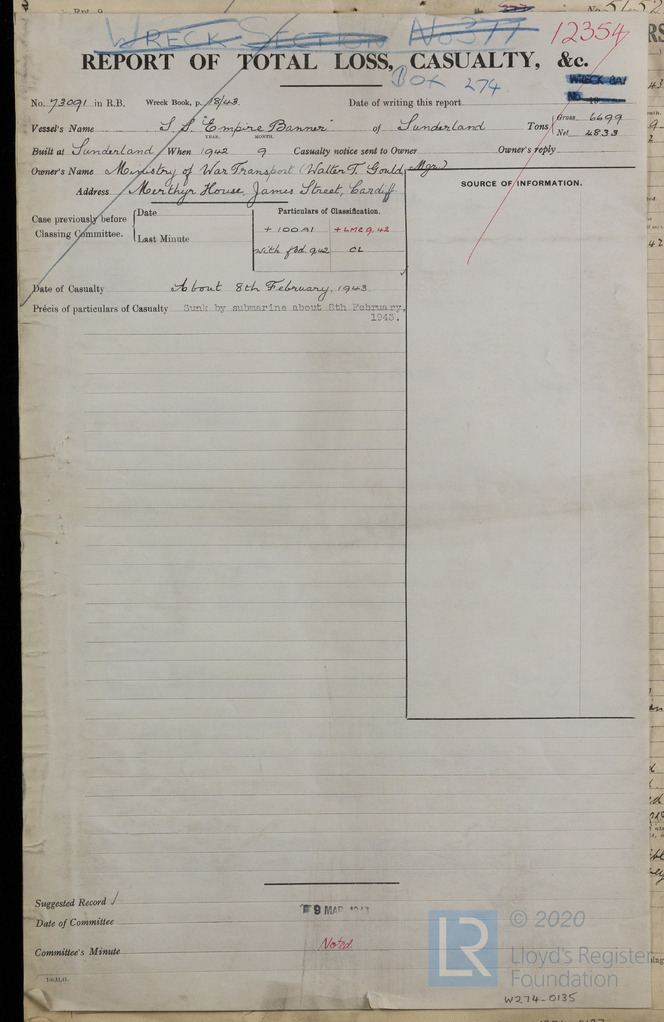 WRECK SECTION No 377
12354
REPORT OF TOTAL LOSS, CASUALTY, &c.
Box 274
WRECK
No. 73091 in R.B. Wreck Book, p. 18/43. Date of writing this report
Vessel's Name S.S. "Empire Banner" of Sunderland Tons Gross 6699
Net 4833
YEAR. MONTH.
Built at Sunderland When 1942 9 Casualty notice sent to Owner Owner's reply
Owner's Name Ministry of War Transport (Walter T. Gould, Mgr.)
SOURCE OF INFORMATION.
Address Merthyr House, James Street, Cardiff
Case previously before Classing Committee.
Date
Last Minute
Particulars of Classification.
+ 100A1 + LMC 9,42
with fbd. 9,42 CL
Date of Casualty About 8th February, 1943
Précis of particulars of Casualty Sunk by submarine about 8th February,
1943.
Suggested Record
9 MAR 1943
Date of Committee
Committee's Minute Noted
LR
© 2020
Lloyd's Register
Foundation
W274-0135